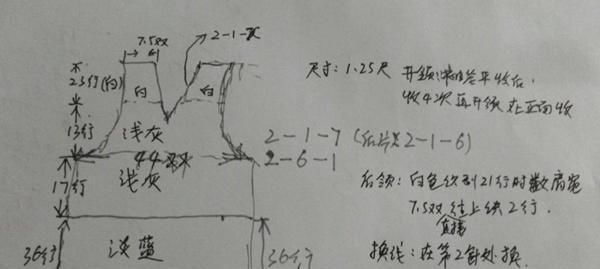 7.5双
2-1-X
25行(白)
白
白
13行
浅灰
44双
17行
浅灰
36行
淡蓝
36行
尺寸:1.25尺
开领:
平收后,
收4次再开领 在正面收
2-1-7(后片是2-1-6)
2-6-1
后领:白色织到21行时数肩宽
7.5双 往上织2行.
直接
换线:在第2针处换.